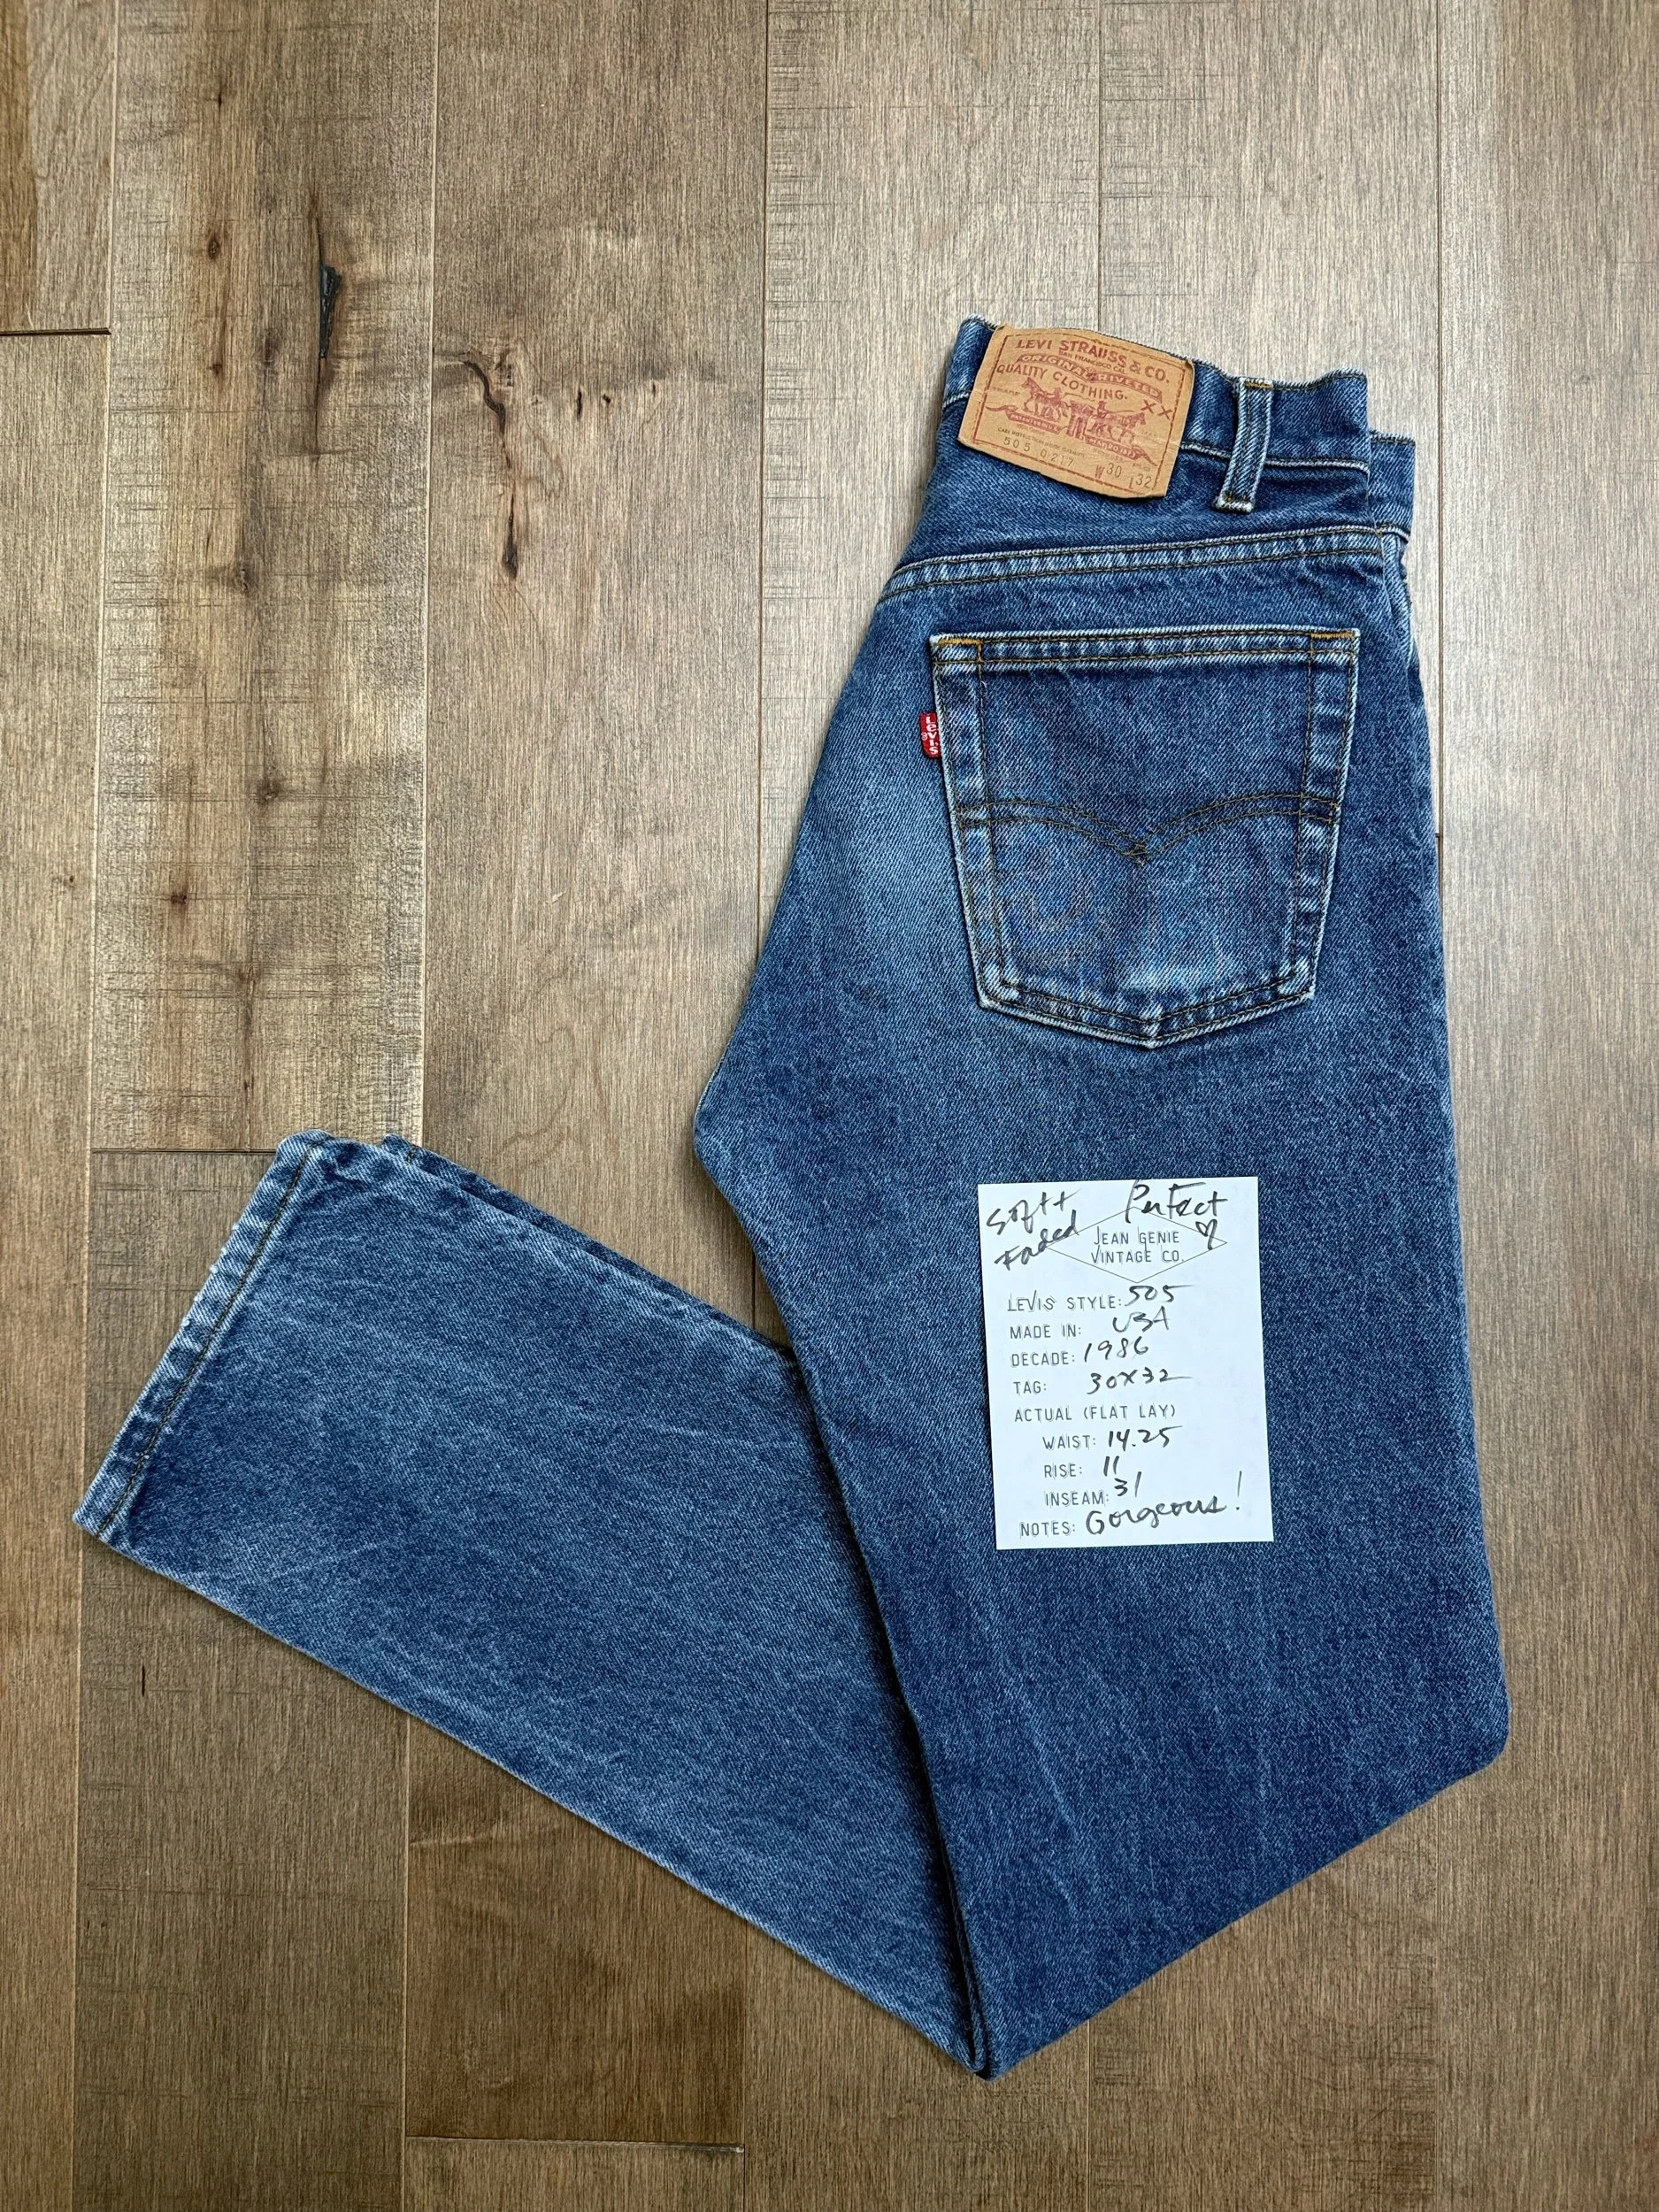 LEVI STRAUSS & CO.
SAN FRANCISCO CAL.
ORIGINAL RIVETED
QUALITY CLOTHING.
XX
505 0217 W30 L32
LEVI'S
Soft + Perfect
Faded
JEAN GENIE
VINTAGE CO.
LEVIS STYLE: 505
MADE IN: USA
DECADE: 1986
TAG: 30X32
ACTUAL (FLAT LAY)
WAIST: 14.25
RISE: 11
INSEAM: 31
NOTES: Gorgeous!